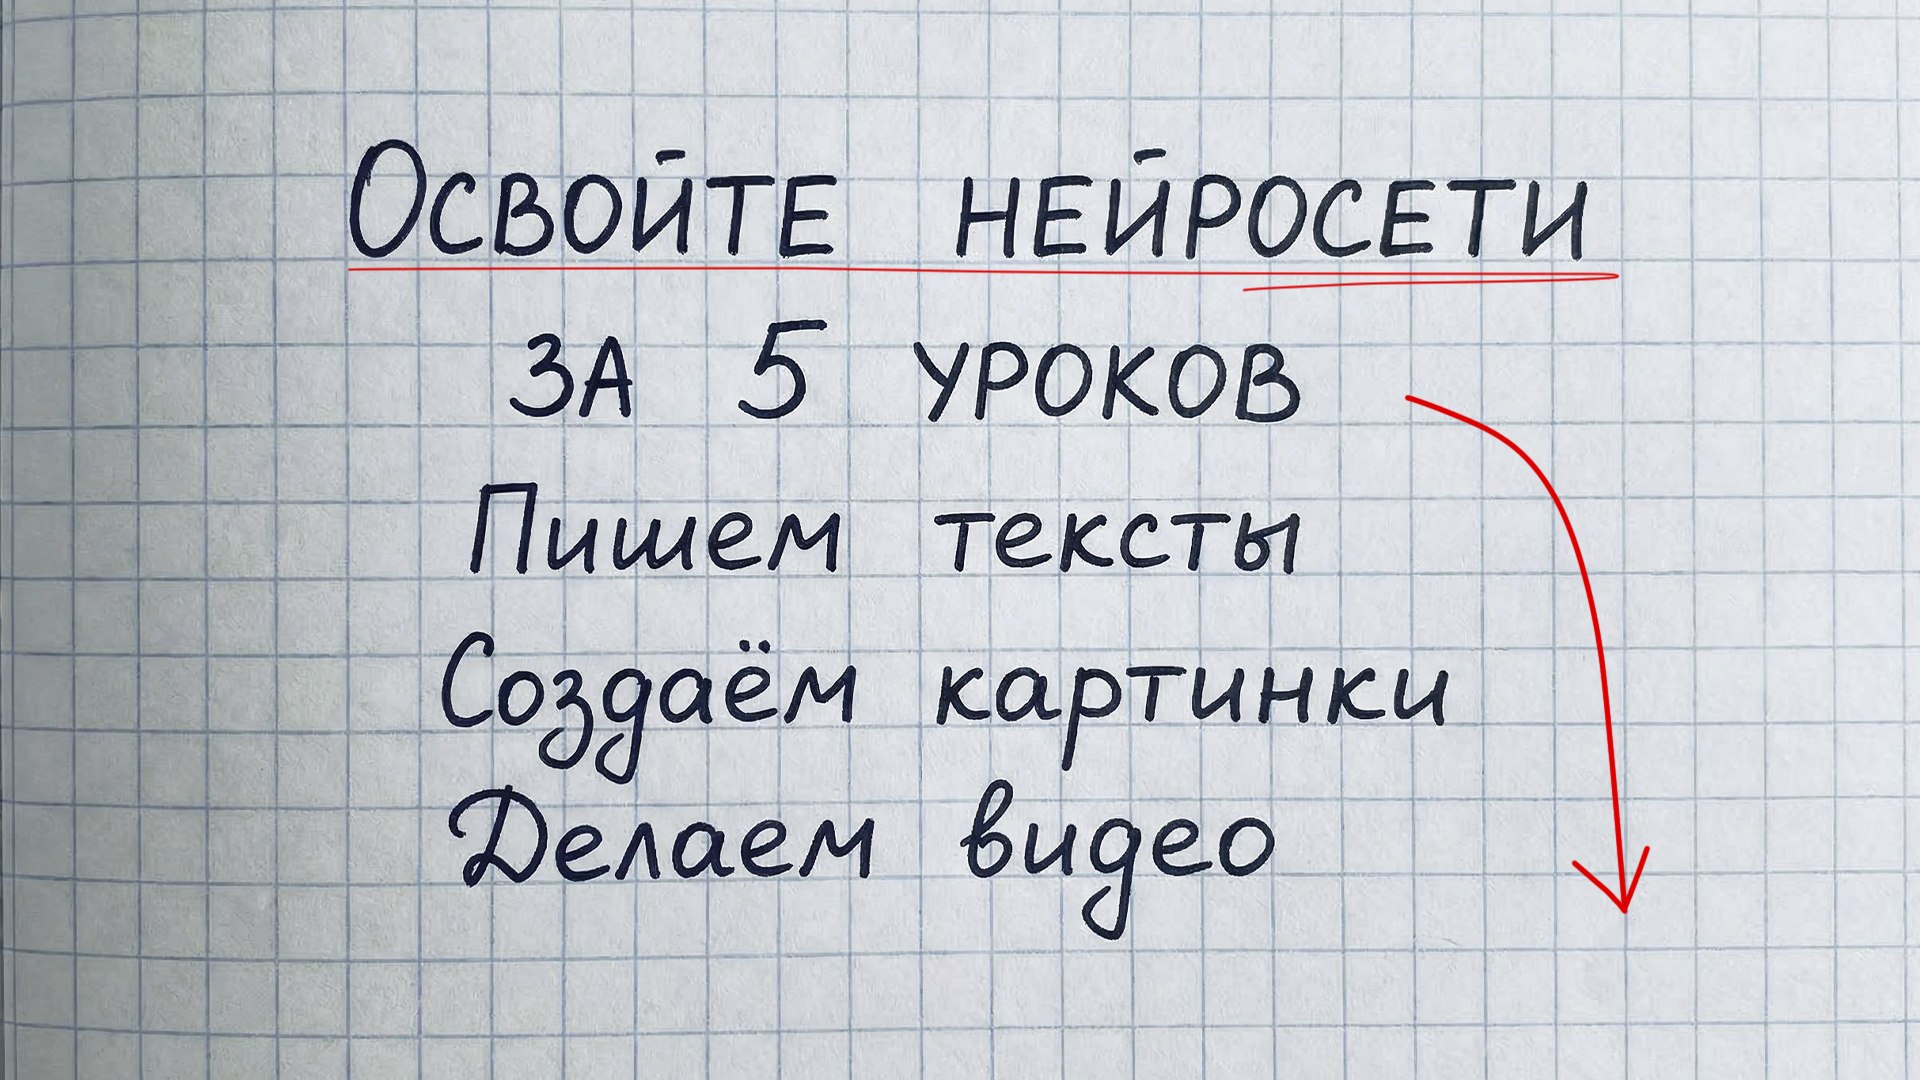 Освойте нейросети
за 5 уроков
Пишем тексты
Создаём картинки
Делаем видео